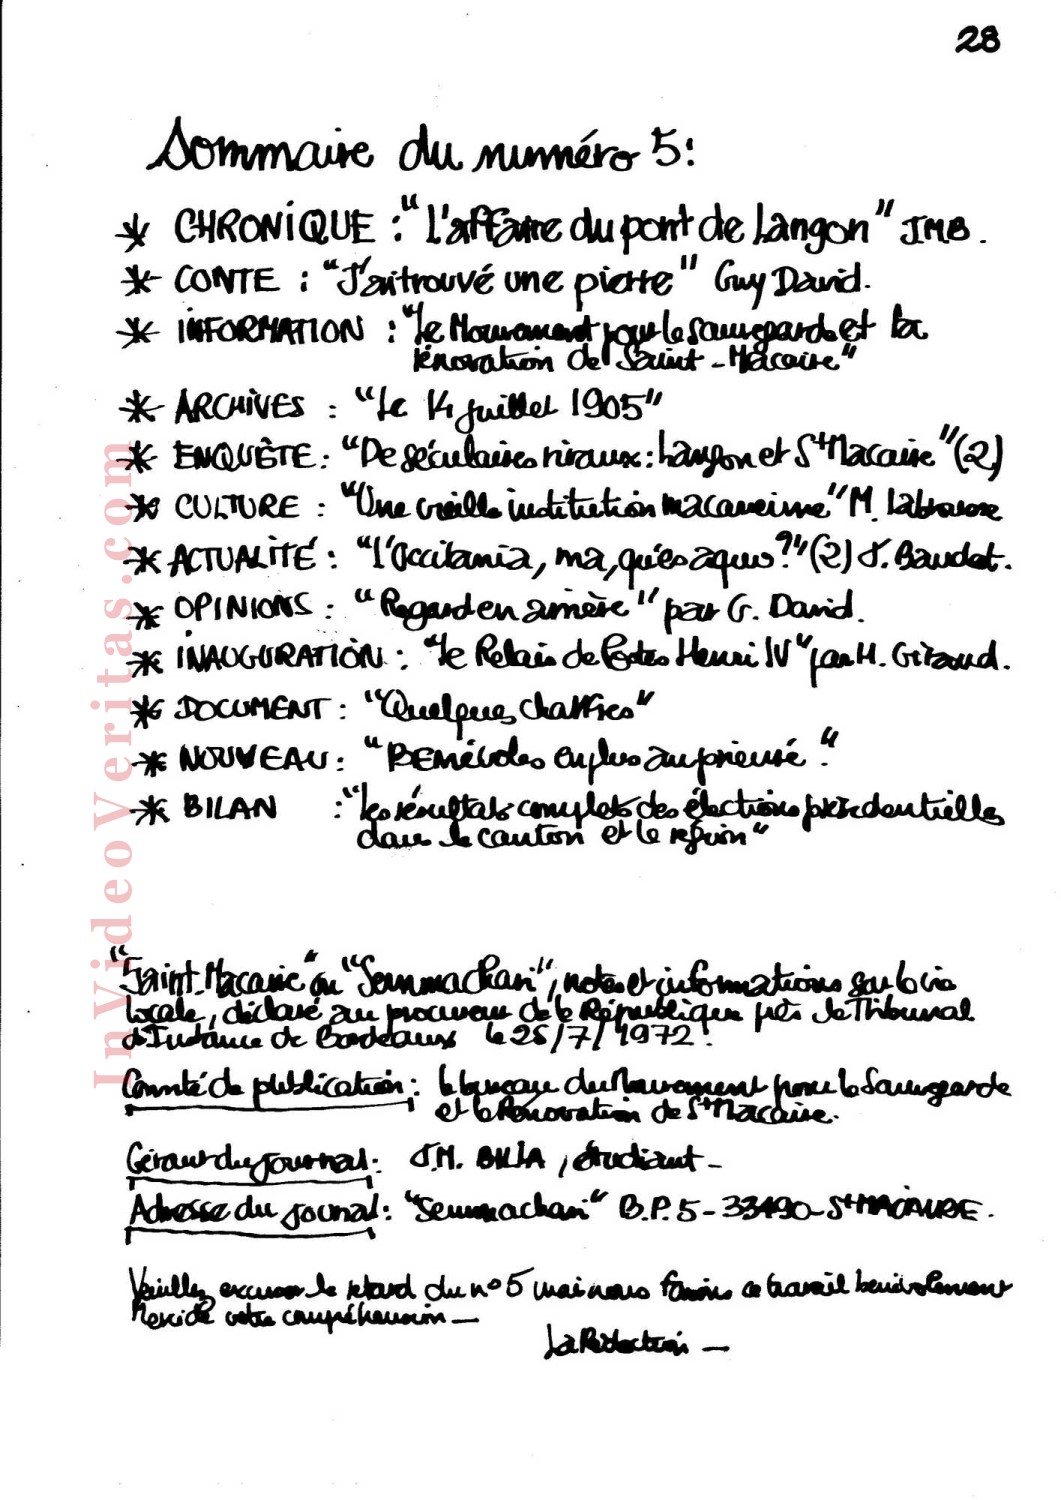 28
Sommaire du numéro 5:
* CHRONIQUE : "L'affaire du pont de Langon" JMB.
* CONTE : "J'ai trouvé une pierre" Guy David.
* INFORMATION : "Le Mouvement pour la Sauvegarde et la
rénovation de Saint-Macaire"
* ARCHIVES : "Le 14 juillet 1905"
* ENQUÊTE : "De séculaires rivaux : Langon et St Macaire" (2)
* CULTURE : "Une vieille institution macarienne" M. Labrousse
* ACTUALITÉ : "l'Occitania, ma, qu'es aquo?" (2) J. Baudet.
* OPINIONS : "Regard en arrière" par G. David.
* INAUGURATION : "le Relais de Postes Henri IV" par H. Giraud.
* DOCUMENT : "Quelques chiffres"
* NOUVEAU : "BEnévoles en plus au prieuré."
* BILAN : "les résultats complets des élections présidentielles
dans le canton et la région"
"Saint-Macaire" ou "Senmachari", notes et informations sur la vie
locale, déclaré au procureur de la République près le Tribunal
d'Instance de Bordeaux le 25/7/1972.
Comité de publication : le bureau du Mouvement pour la Sauvegarde
et la Rénovation de St Macaire.
Gérant du journal : J.M. BILLA, étudiant -
Adresse du journal : "Senmachari" B.P. 5 - 33490 - St MACAIRE.
Veuillez excuser le retard du n° 5 mais nous faisons ce travail bénévolement
Merci de votre compréhension —
La Rédaction —
InVideoVeritas.com